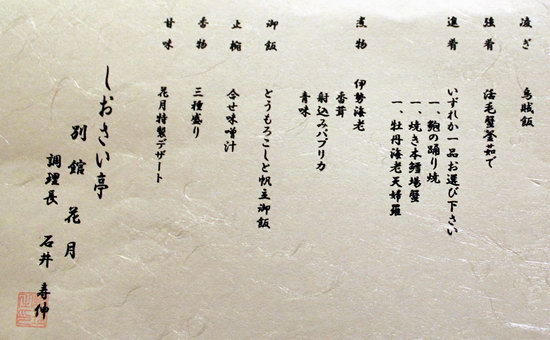 凌ぎ 烏賊飯
強肴 活毛蟹釜茹で
進肴 いずれか一品お選び下さい
一、鮑の踊り焼
一、焼き本鱈場蟹
一、牡丹海老天婦羅
煮物 伊勢海老
香茸
射込みパプリカ
青味
御飯 とうもろこしと帆立御飯
止椀 合せ味噌汁
香物 三種盛り
甘味 花月特製デザート
しおさい亭
別館 花月
調理長 石井 寿伸